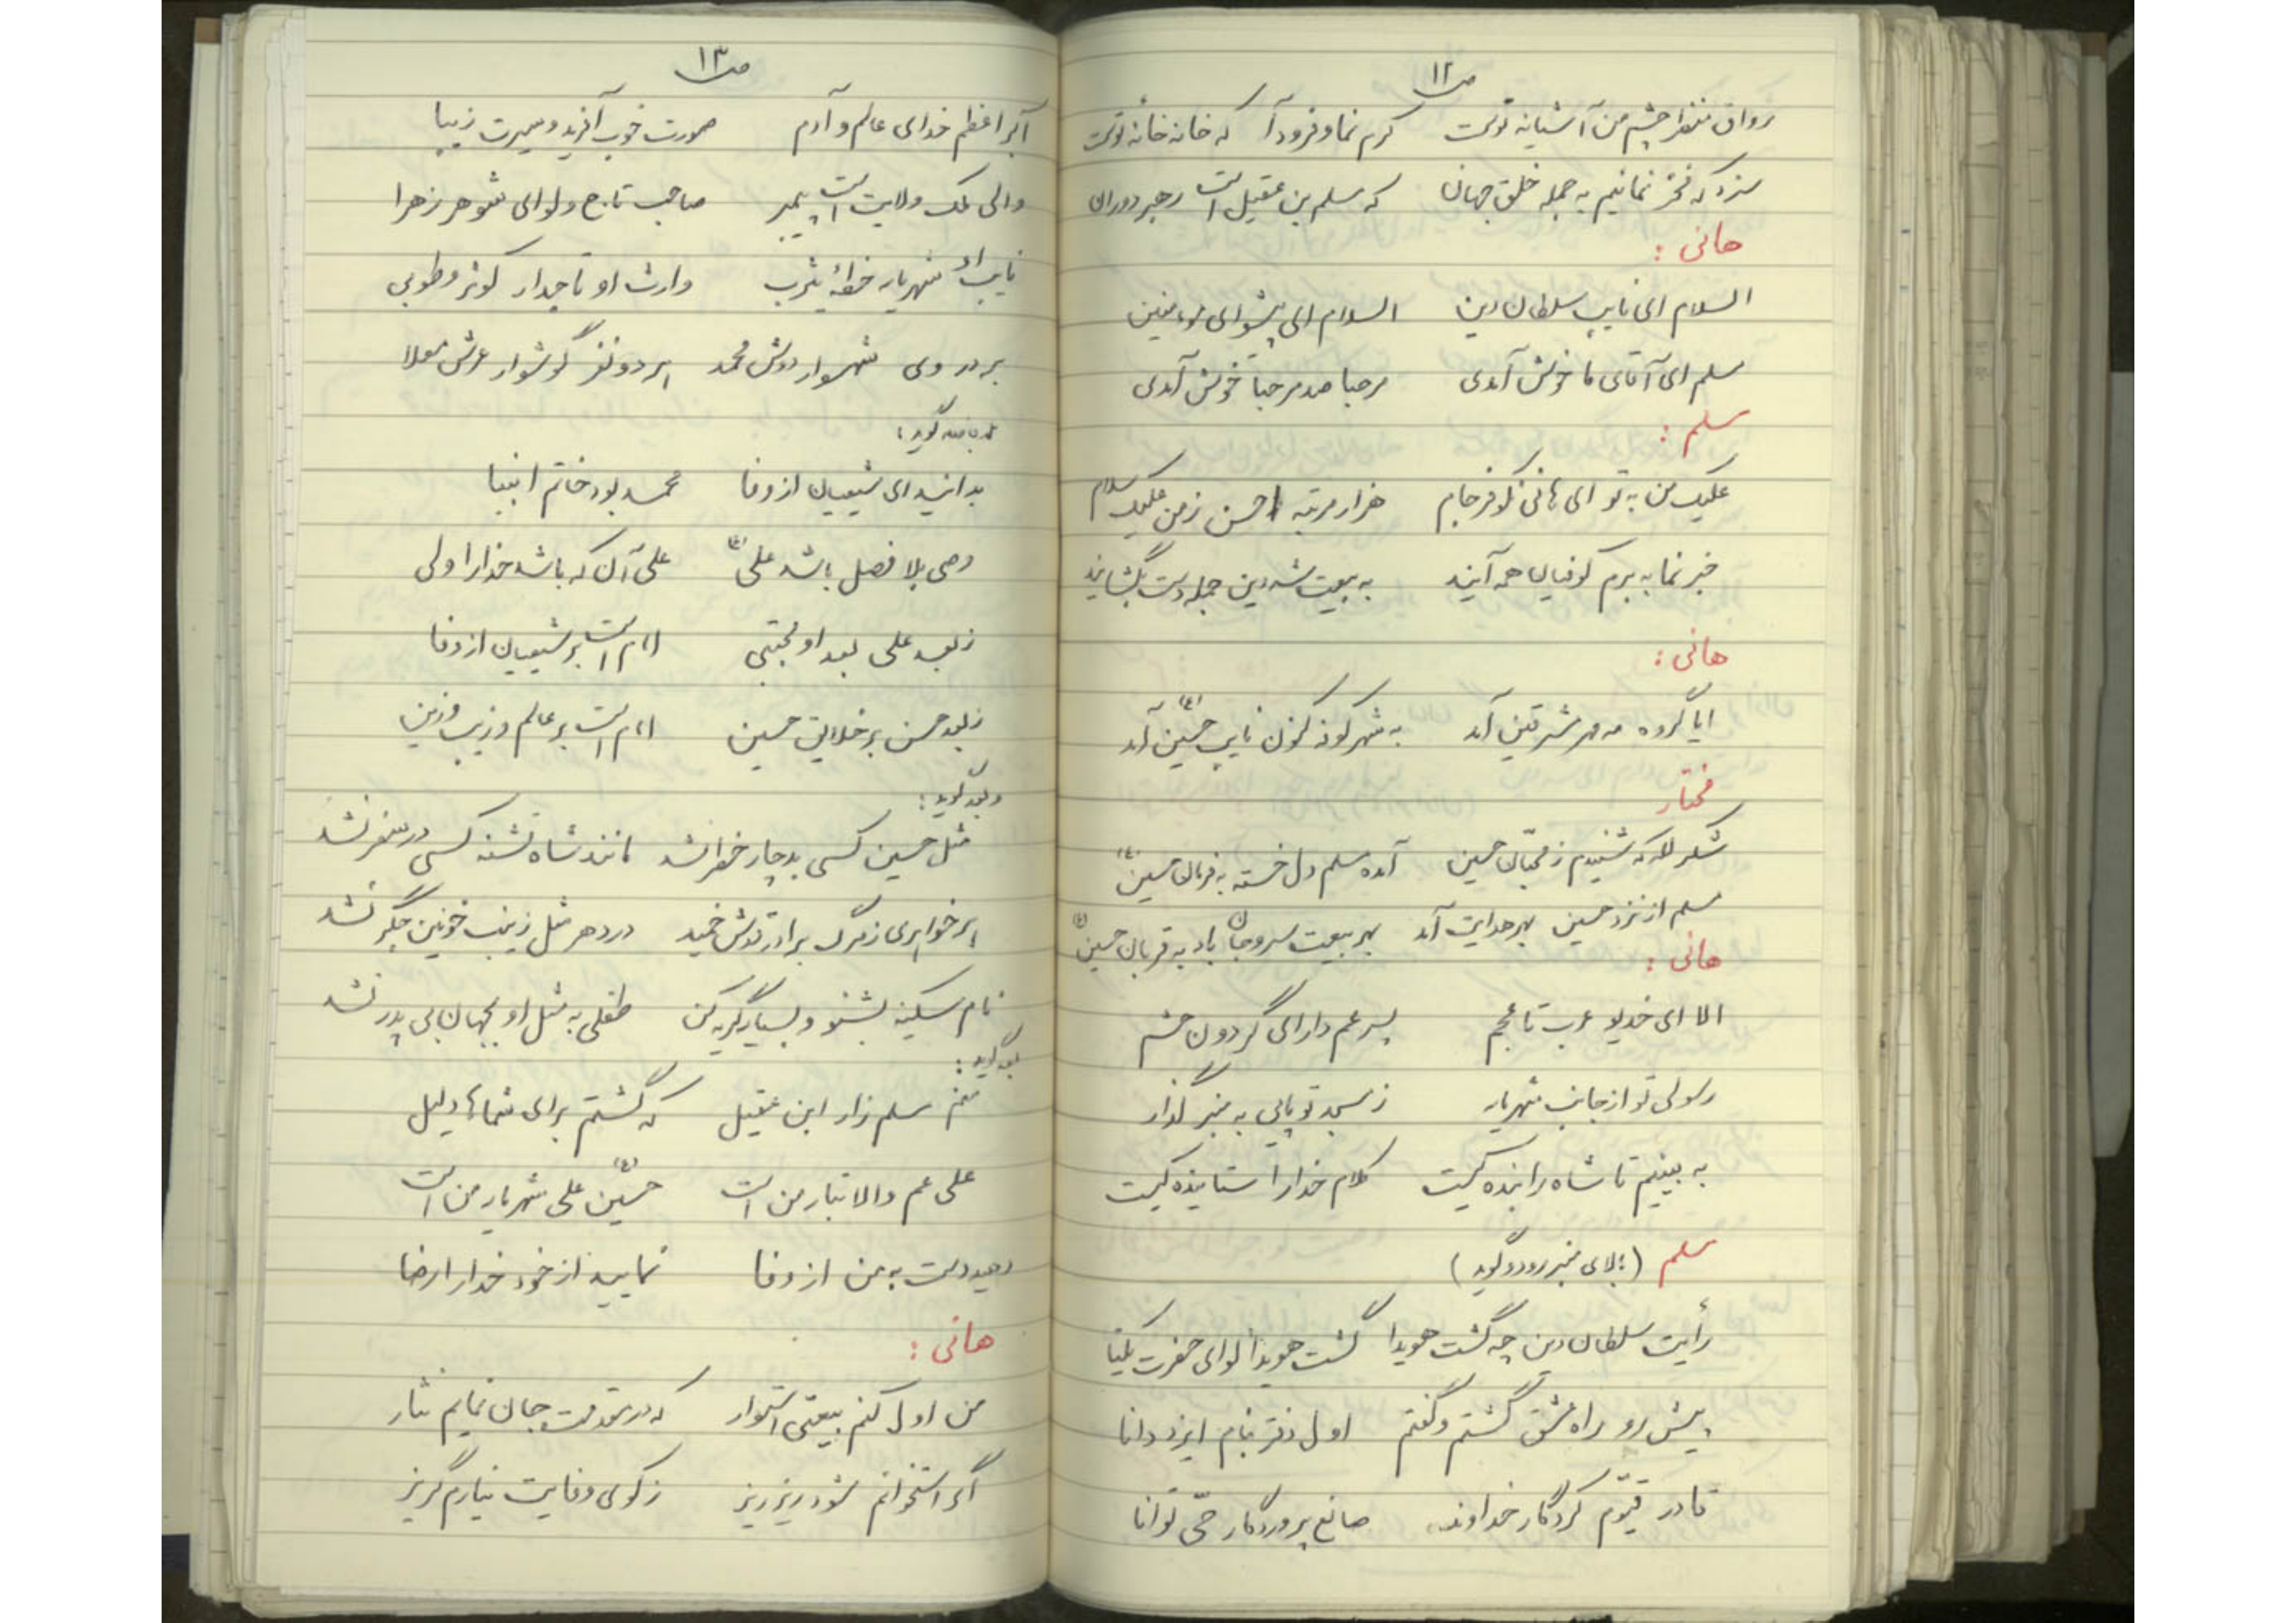 ص ۱۲
رواق منظر چشم من آشیانه توست کرم نما و فرود آ که خانه خانهٔ توست
سزد که فخر نمائیم به جمله خلق جهان که مسلم بن عقیل است رهبر دوران
هانی :
السلام ای نایب سلطان دین السلام ای پیشوای مومنین
مسلم ای آقای ما خوش آمدی مرحبا صد مرحبا خوش آمدی
مسلم :
علیک من به تو ای هانی نکو فرجام هزار مرتبه احسن ز من علیک سلام
خبر نما به برم کوفیان همه آیند به بیعت شه دین جمله دست بگشایند
هانی :
ایا گروه مه مهر مشرقین آمد به شهر کوفه کنون نایب حسین (ع) آمد
مختار
شکر لله که شنیدم ز محبّان حسین آمده مسلم دل خسته به فرمان حسین (ع)
مسلم از نزد حسین بهر هدایت آمد بهر بیعت سر و جان باد به قربان حسین (ع)
هانی :
الا ای خدیو عرب تا عجم پسر عم دارای گردون حشم
رسولی تو از جانب شهریار ز مسجد تو پایی به منبر گذار
به بینیم تا شاه راننده کیست کلام خدا را ستاینده کیست
مسلم (بالای منبر رود و گوید)
رأیت سلطان دین چه گشت هویدا گشت هویدا لوای حضرت یکتا
پیش رو راه عشق گشتم و گفتم اول دفتر بنام ایزد دانا
قادر قیّوم کردگار خداوند صانع پروردگار حّی توانا
ص ۱۳
اکبر اعظم خدای عالم و آدم صورت خوب آفرید و سیرت زیبا
والی ملک ولایت است پیمبر صاحب تاج و لوای شوهر زهرا
نایب او شهریار خطهٔ یثرب وارث او تاجدار کوثر و طوبی
بر در وی شهسوار دوش محمد هر دو نفر گوشوار عرش معلا
گوید :
بدانید ای شیعیان از وفا محمد بود خاتم انبیا
وصی بلا فصل باشد علی (ع) علی آن که باشد خدا را ولی
ز بعد علی بعد او مجتبی امام است بر شیعیان از وفا
ز بعد حسن بر خلایق حسین امام است بر عالم و زیب و زین
و بعد گوید :
مثل حسین کسی بدچار خطر نشد مانند شاه تشنه کسی در سفر نشد
هر خواهری ز مرگ برادر قدش خمید در دهر مثل زینب خونین جگر نشد
نام سکینه بشنو و بسیار گریه کن طفلی به مثل او بجهان بی پدر نشد
بعد گوید :
منم مسلم زار ابن عقیل که گشتم برای شماها دلیل
علی عم والا تبار من است حسین (ع) علی شهریار من است
دهید دست به من از وفا نمایید از خود خدا را رضا
هانی :
من اول کنم بیعتی استوار که در مقدمت جان نمایم نثار
اگر استخوانم شود ریز ریز ز کوی وفایت نیارم گریز